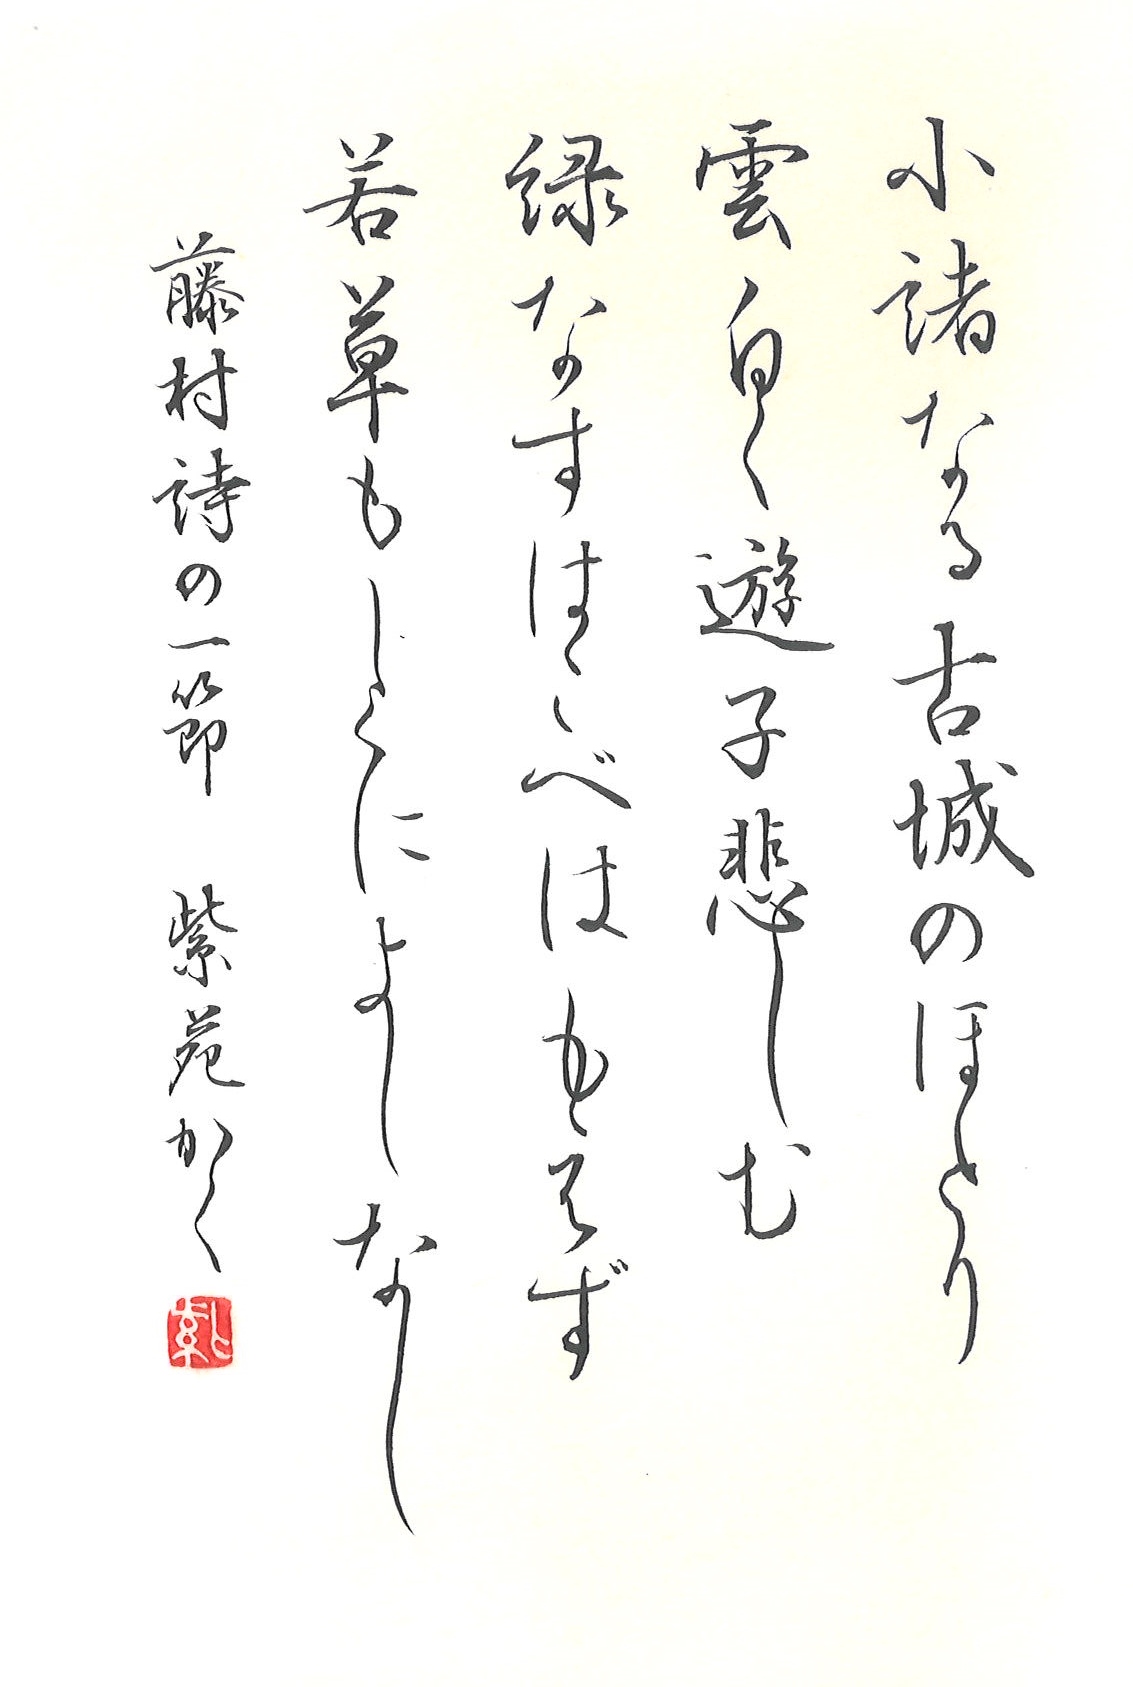 小諸なる古城のほとり
雲白く遊子悲しむ
緑なすはこべはもえず
若草もしくによしなし
藤村詩の一節 紫苑かく